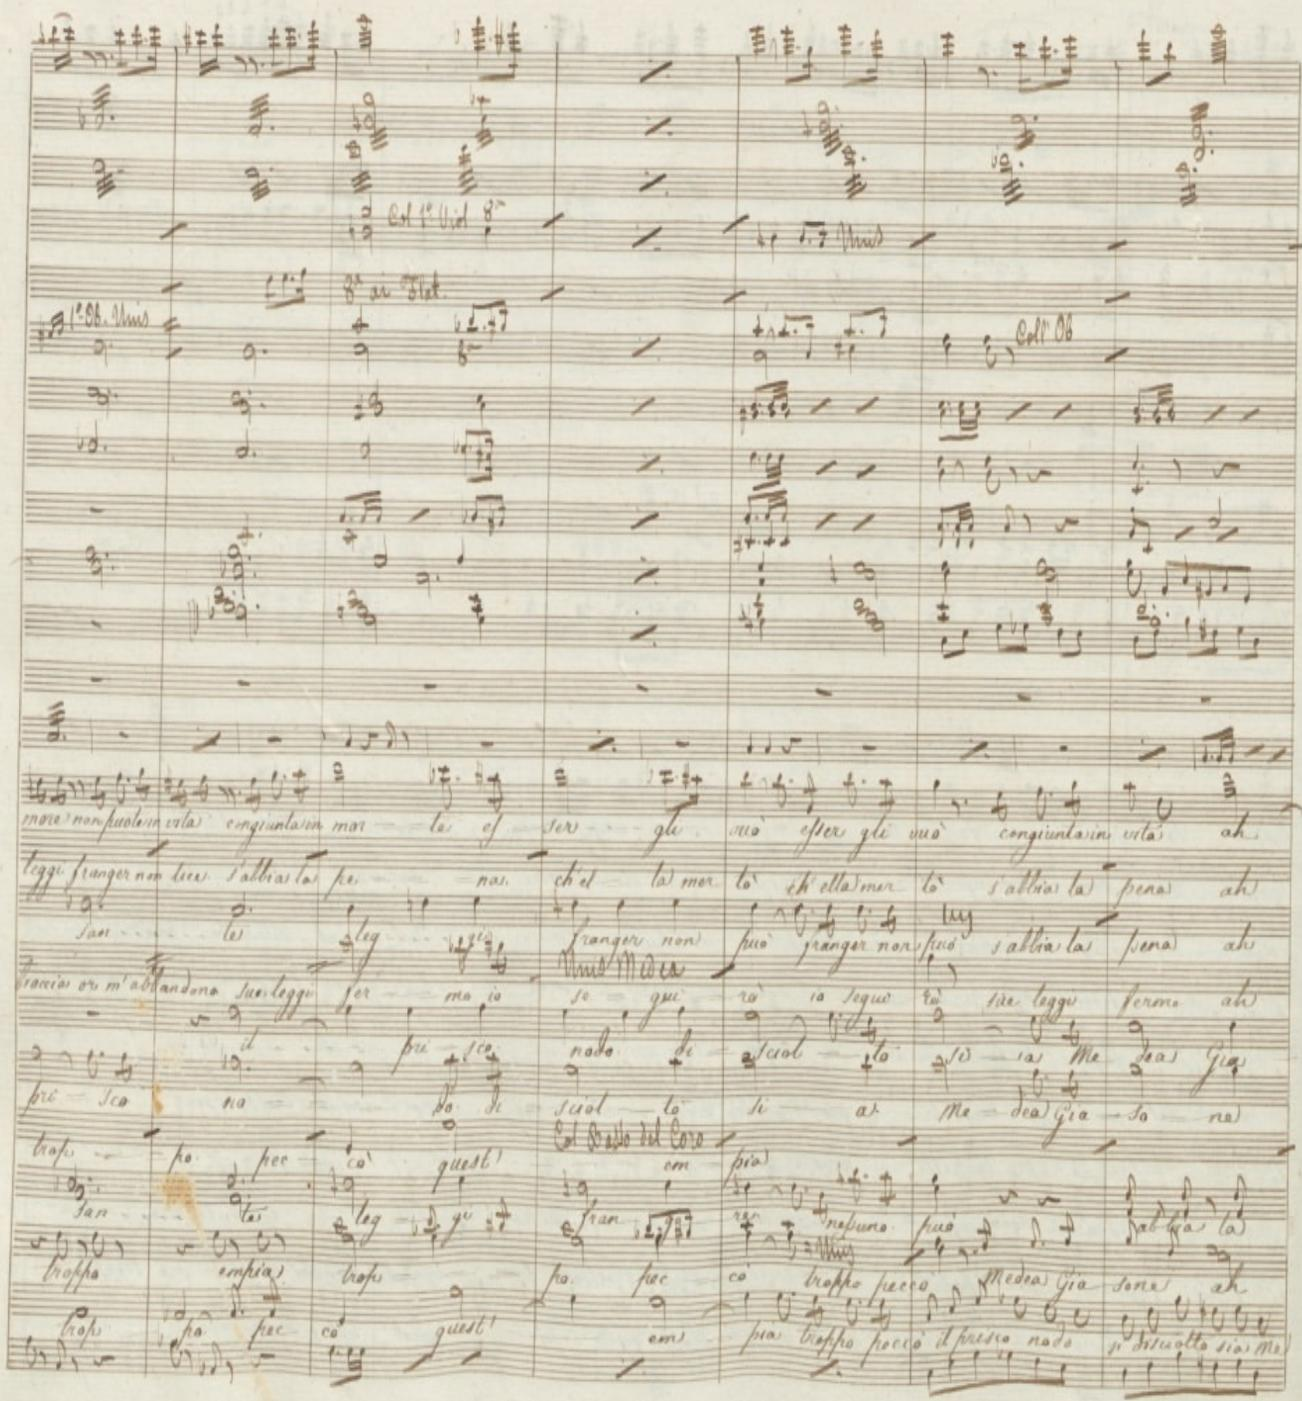 Col 1º Viol 8ª
Unis
8ª ai Flat.
1º Ob. Unis
Coll' Ob
more non puote in vita congiunta in mor - te es - ser gli vuò esser gli vuò congiunta in vita ah
leggi franger non lice s'abbia la pe - na ch'el - la mer - tò ch'ella mer - tò s'abbia la pena ah
san - te leg - gi franger non può franger non può s'abbia la pena ah
Unis Medea
traccia or m'abbandona sue leggi fer - mo io se - gui - rò io segui - rò sue leggi fermo ah
il pri - sco nodo di - sciol - to si - ia Me - dea Gia
pri - sco no - do di - sciol - to si - a Me - dea Gia - so - ne
Col Basso del Coro
trop - po pec - cò quest' em - pia
san - te leg - gi fran - ger nessuno può s'abbia la
Unis
troppo empia trop - po pec - cò troppo peccò Medea Gia - sone ah
trop - po pec - cò quest' em - pia troppo peccò il prisco nodo si disciolto sia Me